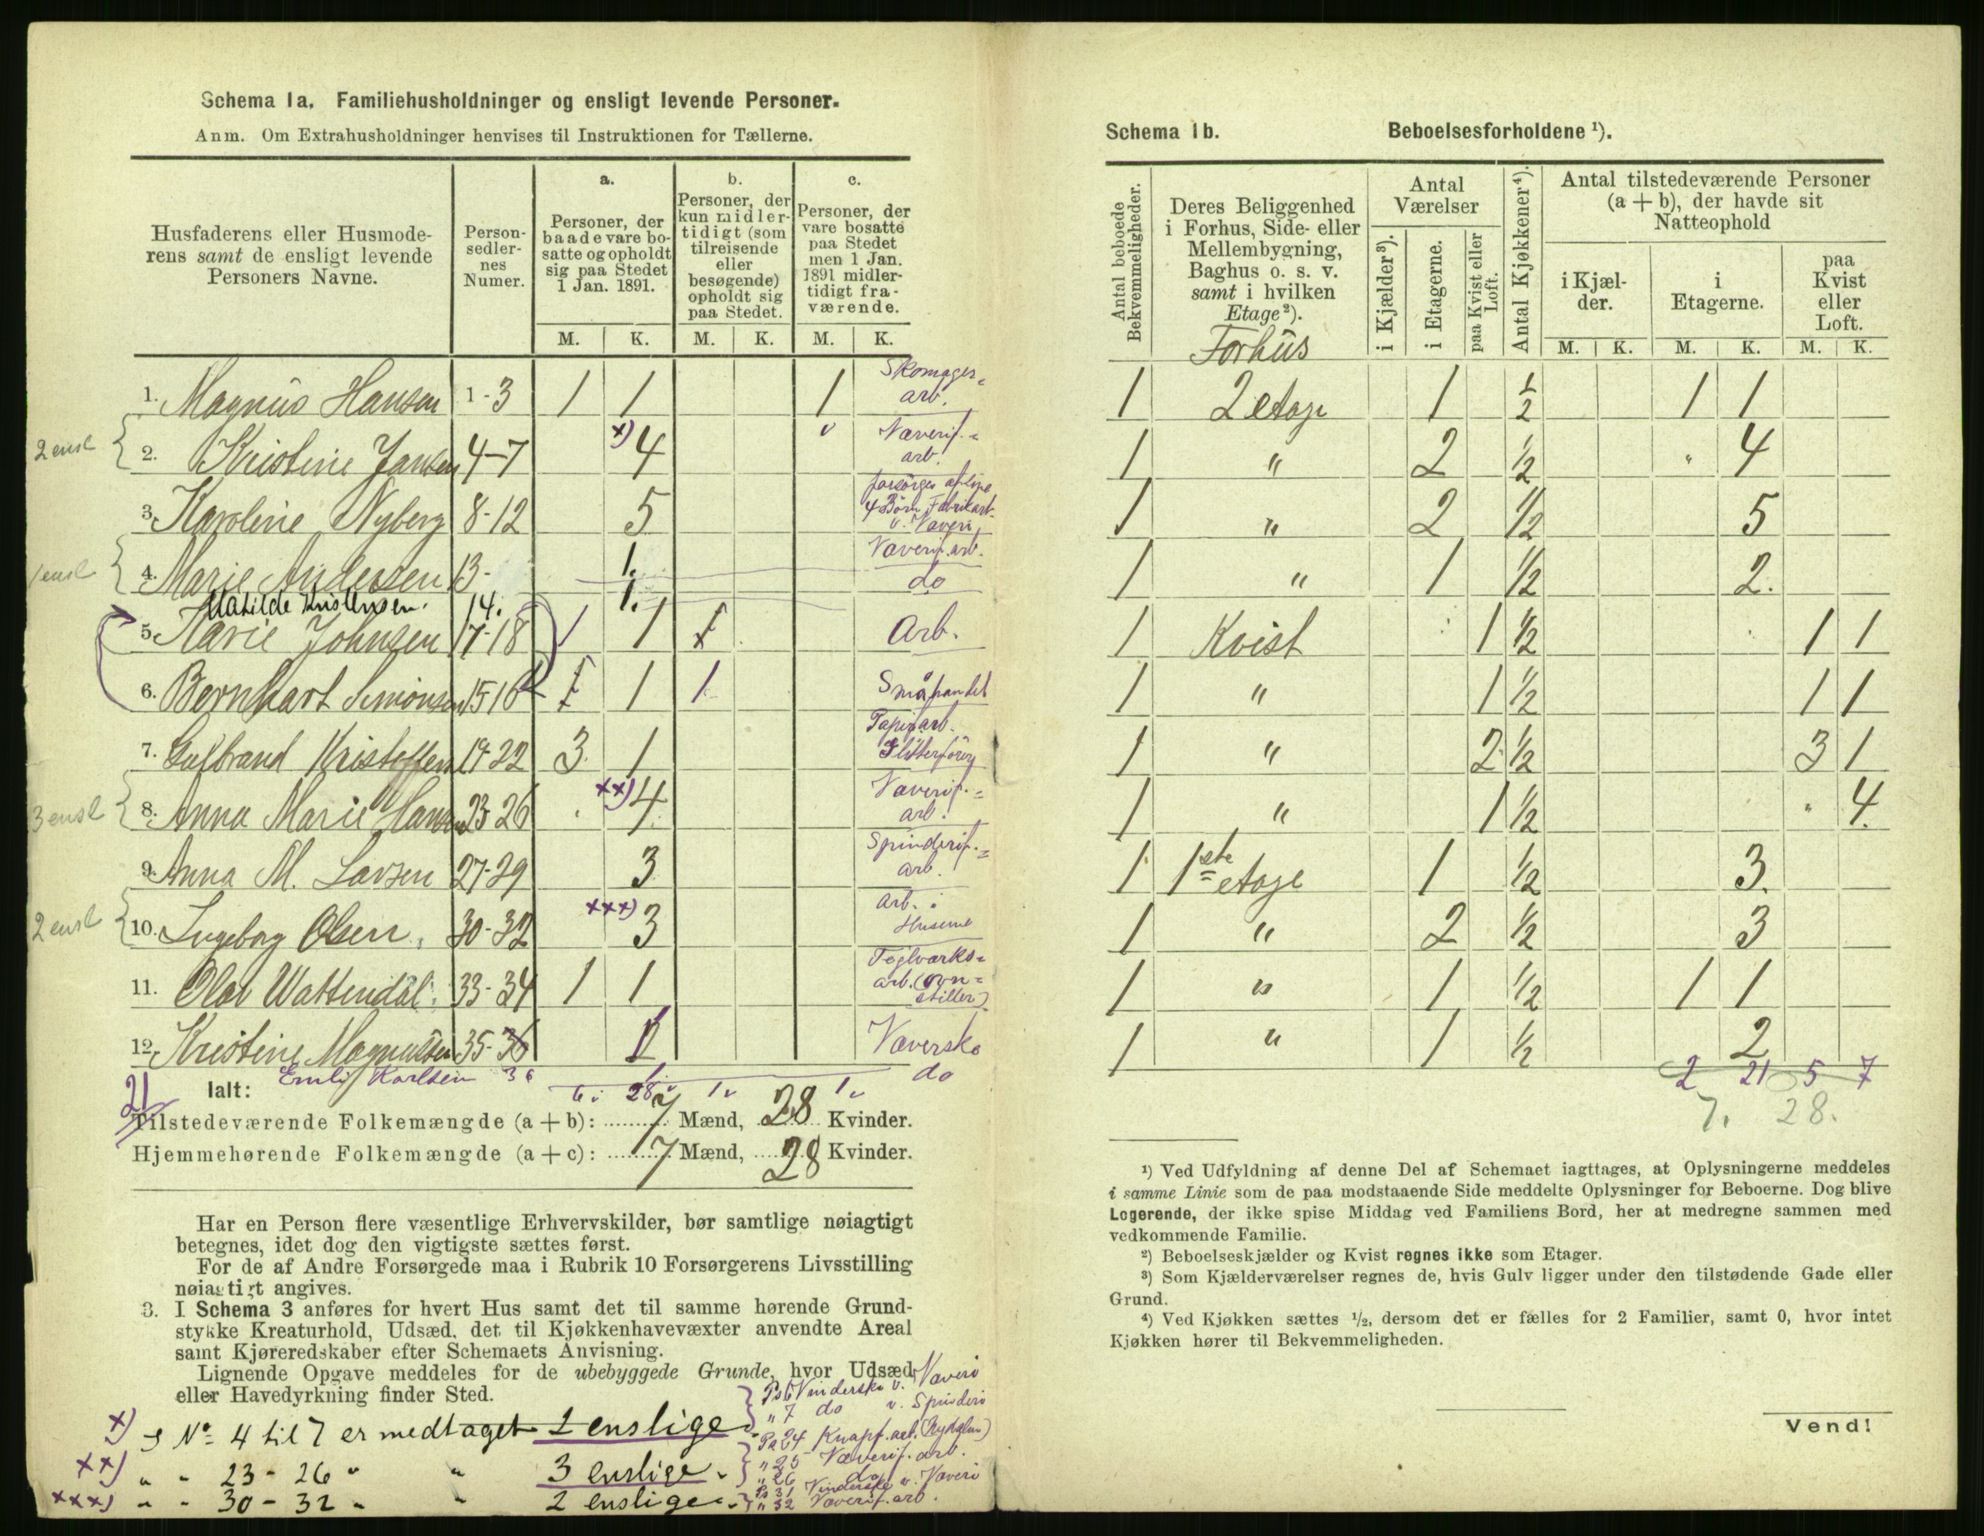 Schema 1a. Familiehusholdninger og ensligt levende Personer.
Anm. Om Extrahusholdninger henvises til Instruktionen for Tællerne.
Husfaderens eller Husmode-
rens samt de ensligt levende
Personers Navne.
Person-
sedler-
nes
Numer.
a.
Personer, der
baade vare bo-
satte og opholdt
sig paa Stedet
1 Jan. 1891.
b.
Personer, der
kun midler-
tidigt (som
tilreisende
eller
besøgende)
opholdt sig
paa Stedet.
c.
Personer, der
vare bosatte
paa Stedet
men 1 Jan.
1891 midler-
tidigt fra-
værende.
M. K. M. K. M. K.
1. Magnus Hansen 1-3 1 1 1 Skomager-
arb.
2 ensl 2. Kristine Jansen 4-7 x) 4 Væverif.=
arb.
3. Karoline Nyberg 8-12 5 forsörger
4 Börn Fabrikarb.
v. Væveri
1 ensl 4. Marie Andersen 13- 1. Væverif. arb.
Matilde Kristensen. 14. 1. do
5. Karie Johnsen 17-18 1 1 1 Arb.
6. Bernhart Simonsen 15-16 1 1 1 Småhandel
7. Gulbrand Kristoffersen 19-22 3. 1 Papirarb.
3 ensl 8. Anna Marie Hansen 23-26 xx) 4 Væverif.=
arb.
9. Anna M. Larsen 27-29 3 Spinderif.=
arb.
2 ensl 10. Ingeborg Olsen. 30-32 xxx) 3 arb. i
Husene
11. Olav Wattendal. 33-34 1 1 Teglværks=
arb. (ovn=
stiller)
12. Kristine Magnussen 35-36 1 Væverske
Emily Karlsen 36 1 do
21
Ialt: 6 28 1 1
Tilstedeværende Folkemængde (a + b): 7 Mænd, 28 Kvinder.
Hjemmehørende Folkemængde (a + c): 7 Mænd, 28 Kvinder.
Har en Person flere væsentlige Erhvervskilder, bør samtlige nøiagtigt
betegnes, idet dog den vigtigste sættes først.
For de af Andre Forsørgede maa i Rubrik 10 Forsørgerens Livsstilling
nøiagtigt angives.
3. I Schema 3 anføres for hvert Hus samt det til samme hørende Grund-
stykke Kreaturhold, Udsæd, det til Kjøkkenhavevæxter anvendte Areal
samt Kjøreredskaber efter Schemaets Anvisning.
Lignende Opgave meddeles for de ubebyggede Grunde, hvor Udsæd
eller Havedyrkning finder Sted.
x) I No 4 til 7 er medtaget 2 enslige. Ps 6 Vinderske v. Væveri
" 7 do v. Spinderi
xx) " " 23 - 26 " " 3 enslige. Ps 24 Knapf. arb.
" 25 Væverif. arb.
" 26 do
xxx) " " 30 - 32 " " 2 enslige. Ps 31 Vinderske v. Væveri
" 32 Væverif. arb.
Schema 1b. Beboelsesforholdene ¹).
Antal beboede
Bekvemmeligheder.
Deres Beliggenhed
i Forhus, Side- eller
Mellembygning,
Baghus o. s. v.
samt i hvilken
Etage²).
Forhüs
Antal
Værelser
i Kjælder³).
i Etagerne.
paa Kvist eller
Loft.
Antal Kjøkkener⁴).
Antal tilstedeværende Personer
(a + b), der havde sit
Natteophold
i Kjæl-
der.
i
Etagerne.
paa
Kvist
eller
Loft.
M. K. M. K. M. K.
1 2 etage 1 1/2 1 1
1 " 2 1/2 " 4
1 " 2 1/2 5
1 " 1 1/2 2.
1 Kvist 1 1/2 1 1
1 " 1 1/2 1 1
1 " 2 1/2 3 1
1 " 1 1/2 " 4.
1 1ste etage 1 1/2 3.
1 " 2 1/2 3
1 " 1 1/2 1 1
1 " 1 1/2 2
2 21 5 7
7. 28.
¹) Ved Udfyldning af denne Del af Schemaet iagttages, at Oplysningerne meddeles
i samme Linie som de paa modstaaende Side meddelte Oplysninger for Beboerne. Dog blive
Logerende, der ikke spise Middag ved Familiens Bord, her at medregne sammen med
vedkommende Familie.
²) Beboelseskjælder og Kvist regnes ikke som Etager.
³) Som Kjælderværelser regnes de, hvis Gulv ligger under den tilstødende Gade eller
Grund.
⁴) Ved Kjøkken sættes ½, dersom det er fælles for 2 Familier, samt 0, hvor intet
Kjøkken hører til Bekvemmeligheden.
Vend!